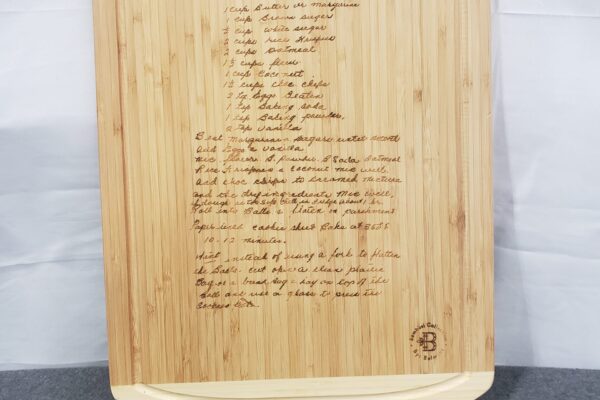 1 cup Butter or margarine
1 cup Brown sugar
½ cup white sugar
2 cups rice Krispies
2 cups Oatmeal
1½ cups flour
1 cup Coconut
1½ cups choc. chips
2 Eggs Beaten
1 tsp Baking soda
1 tsp Baking powder
2 tsp vanilla
Beat Margarine sugars until smooth
add Eggs & vanilla
mix flour B. powder, B Soda oatmeal
Rice Krispies & coconut mix well
add choc chips to creamed mixture
and the dry ingredients Mix well.
if dough is to soft chill in fridge about 1 hr.
Roll into Balls & flatten on parchment
Paper lined cookie sheet Bake at 350°
10-12 minutes.
Hint instead of using a fork to flatten
the Balls. cut open a clean plastic
Bag or a bread bag & lay on top of the
Balls and use a glass to press the
Cookies
B